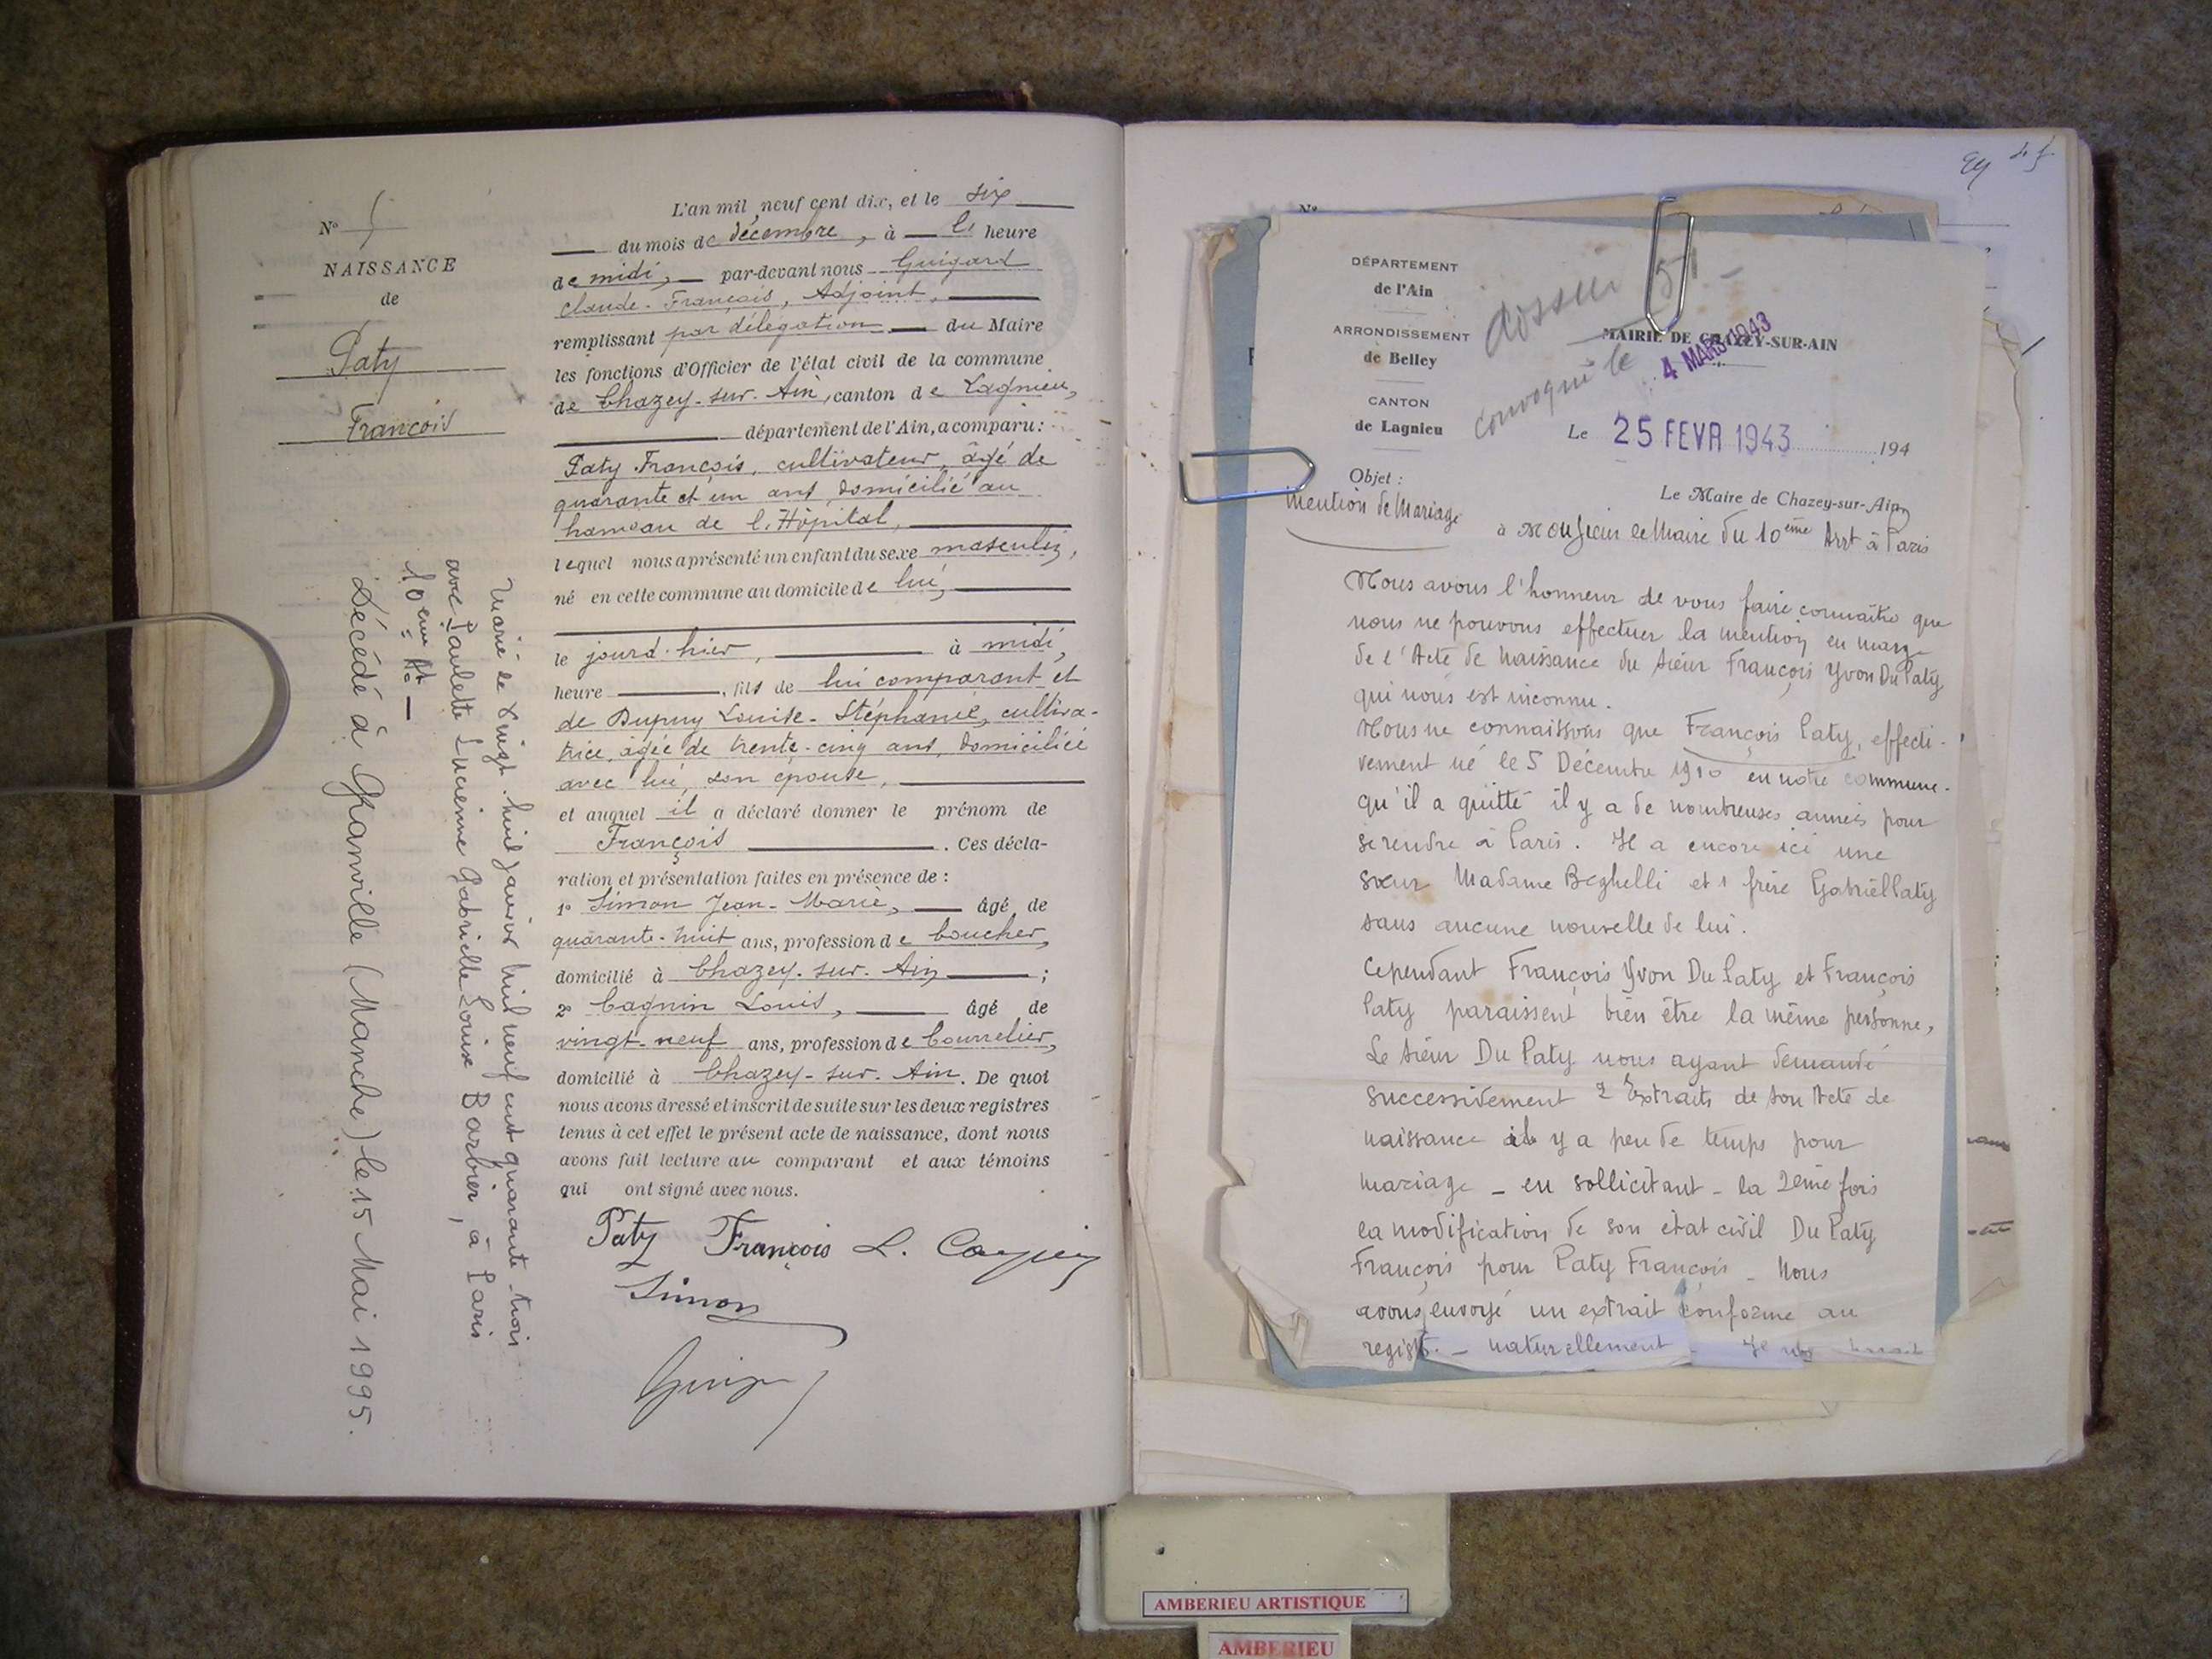 N°
NAISSANCE
de
Paty
François
Marié le vingt-huit janvier mil neuf cent quarante-trois
avec Paulette Lucienne Gabrielle Louise Barbier, à Paris
10ème Art
Décédé à Granville (Manche) le 15 Mai 1995.
L'an mil neuf cent dix, et le six
du mois de décembre, à l' heure
de midi, par-devant nous Guigard
Claude-François, Adjoint,
remplissant par délégation du Maire
les fonctions d'Officier de l'état civil de la commune
de Chazey-sur-Ain, canton de Lagnieu,
département de l'Ain, a comparu :
Paty François, cultivateur, âgé de
quarante et un ans, domicilié au
hameau de l'Hôpital,
lequel nous a présenté un enfant du sexe masculin,
né en cette commune au domicile de lui,
le jourd-hier, à midi,
heure , fils de lui comparant et
de Dupuy Louise-Stéphanie, cultiva-
trice, âgée de trente-cinq ans, domiciliée
avec lui, son épouse,
et auquel il a déclaré donner le prénom de
François . Ces décla-
ration et présentation faites en présence de :
1° Simon Jean-Marie, âgé de
quarante-huit ans, profession de boucher,
domicilié à Chazey-sur-Ain ;
2° Cagnin Louis, âgé de
vingt-neuf ans, profession de bourrelier,
domicilié à Chazey-sur-Ain. De quoi
nous avons dressé et inscrit de suite sur les deux registres
tenus à cet effet le présent acte de naissance, dont nous
avons fait lecture au comparant et aux témoins
qui ont signé avec nous.
Paty François L. Cagnin
Simon
N°
DÉPARTEMENT
de l'Ain
ARRONDISSEMENT
de Belley
CANTON
de Lagnieu
dossier 51 -
convoqué le 4 MARS 1943
MAIRIE DE CHAZEY-SUR-AIN
Le 25 FEVR 1943 194
Objet :
Mention de Mariage
Le Maire de Chazey-sur-Ain
à Monsieur le Maire du 10ème Arrt à Paris
Nous avons l'honneur de vous faire connaître que
nous ne pouvons effectuer la mention en marge
de l'Acte de Naissance du sieur François Yvon Du Paty
qui nous est inconnu.
Nous ne connaissons que François Paty, effecti-
vement né le 5 Décembre 1910 en notre commune
qu'il a quitté il y a de nombreuses années pour
se rendre à Paris. Il a encore ici une
sœur Madame Beghelli et 1 frère Gabriel Paty
sans aucune nouvelle de lui.
Cependant François Yvon Du Paty et François
Paty paraissent bien être la même personne,
Le sieur Du Paty nous ayant demandé
successivement 2 Extraits de son Acte de
naissance il y a peu de temps pour
mariage - en sollicitant - la 2ème fois
la modification de son état civil Du Paty
François pour Paty François - Nous
avons envoyé un extrait conforme au
regist. - naturellement -
AMBERIEU ARTISTIQUE
AMBERIEU